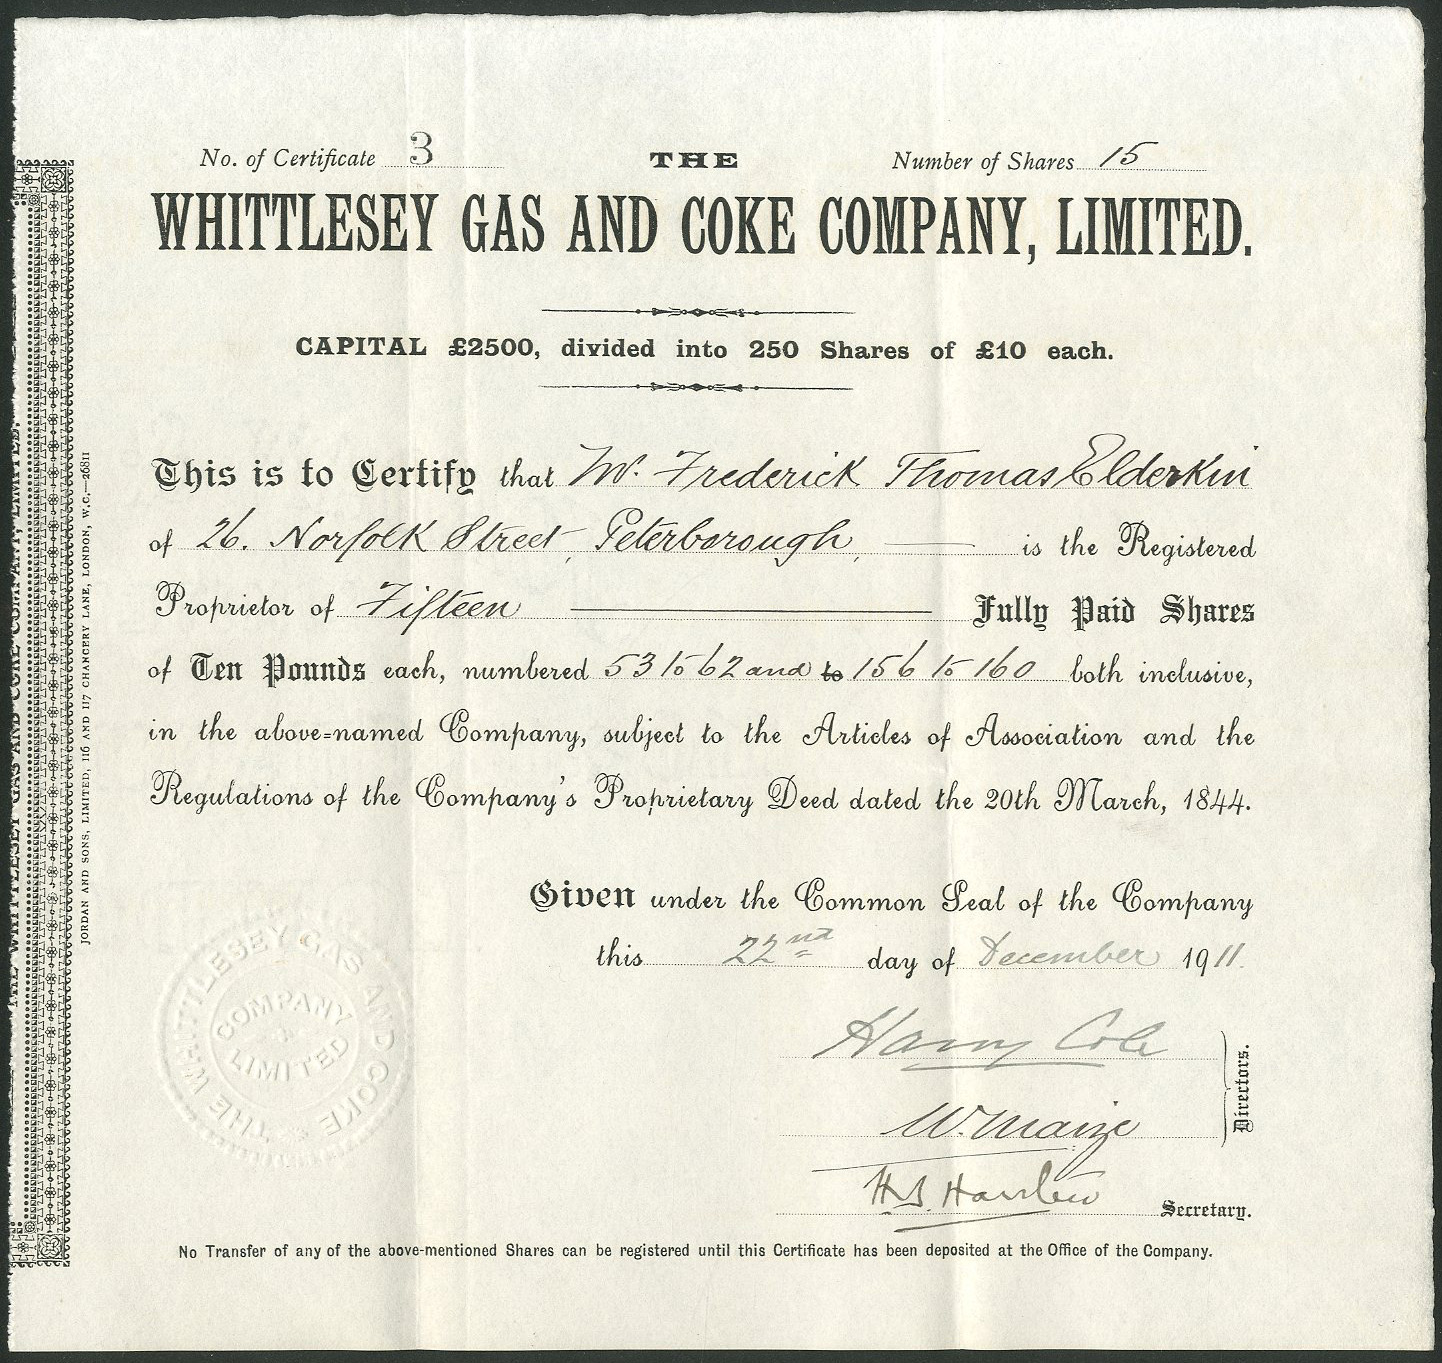 No. of Certificate 3 THE Number of Shares 15
WHITTLESEY GAS AND COKE COMPANY, LIMITED.
CAPITAL £2500, divided into 250 Shares of £10 each.
This is to Certify that Mr. Frederick Thomas Elderkin
of 26. Norfolk Street, Peterborough, is the Registered
Proprietor of Fifteen Fully Paid Shares
of Ten Pounds each, numbered 53 to 62 and to 156 to 160 both inclusive,
in the above=named Company, subject to the Articles of Association and the
Regulations of the Company's Proprietary Deed dated the 20th March, 1844.
Given under the Common Seal of the Company
this 22nd day of December 1911.
Harry Cole
W. Maize
Directors.
H.S. Secretary.
No Transfer of any of the above-mentioned Shares can be registered until this Certificate has been deposited at the Office of the Company.
THE WHITTLESEY GAS AND COKE
COMPANY
LIMITED
THE WHITTLESEY GAS AND COKE COMPANY, LIMITED.
JORDAN AND SONS, LIMITED, 116 AND 117 CHANCERY LANE, LONDON, W.C.—26811